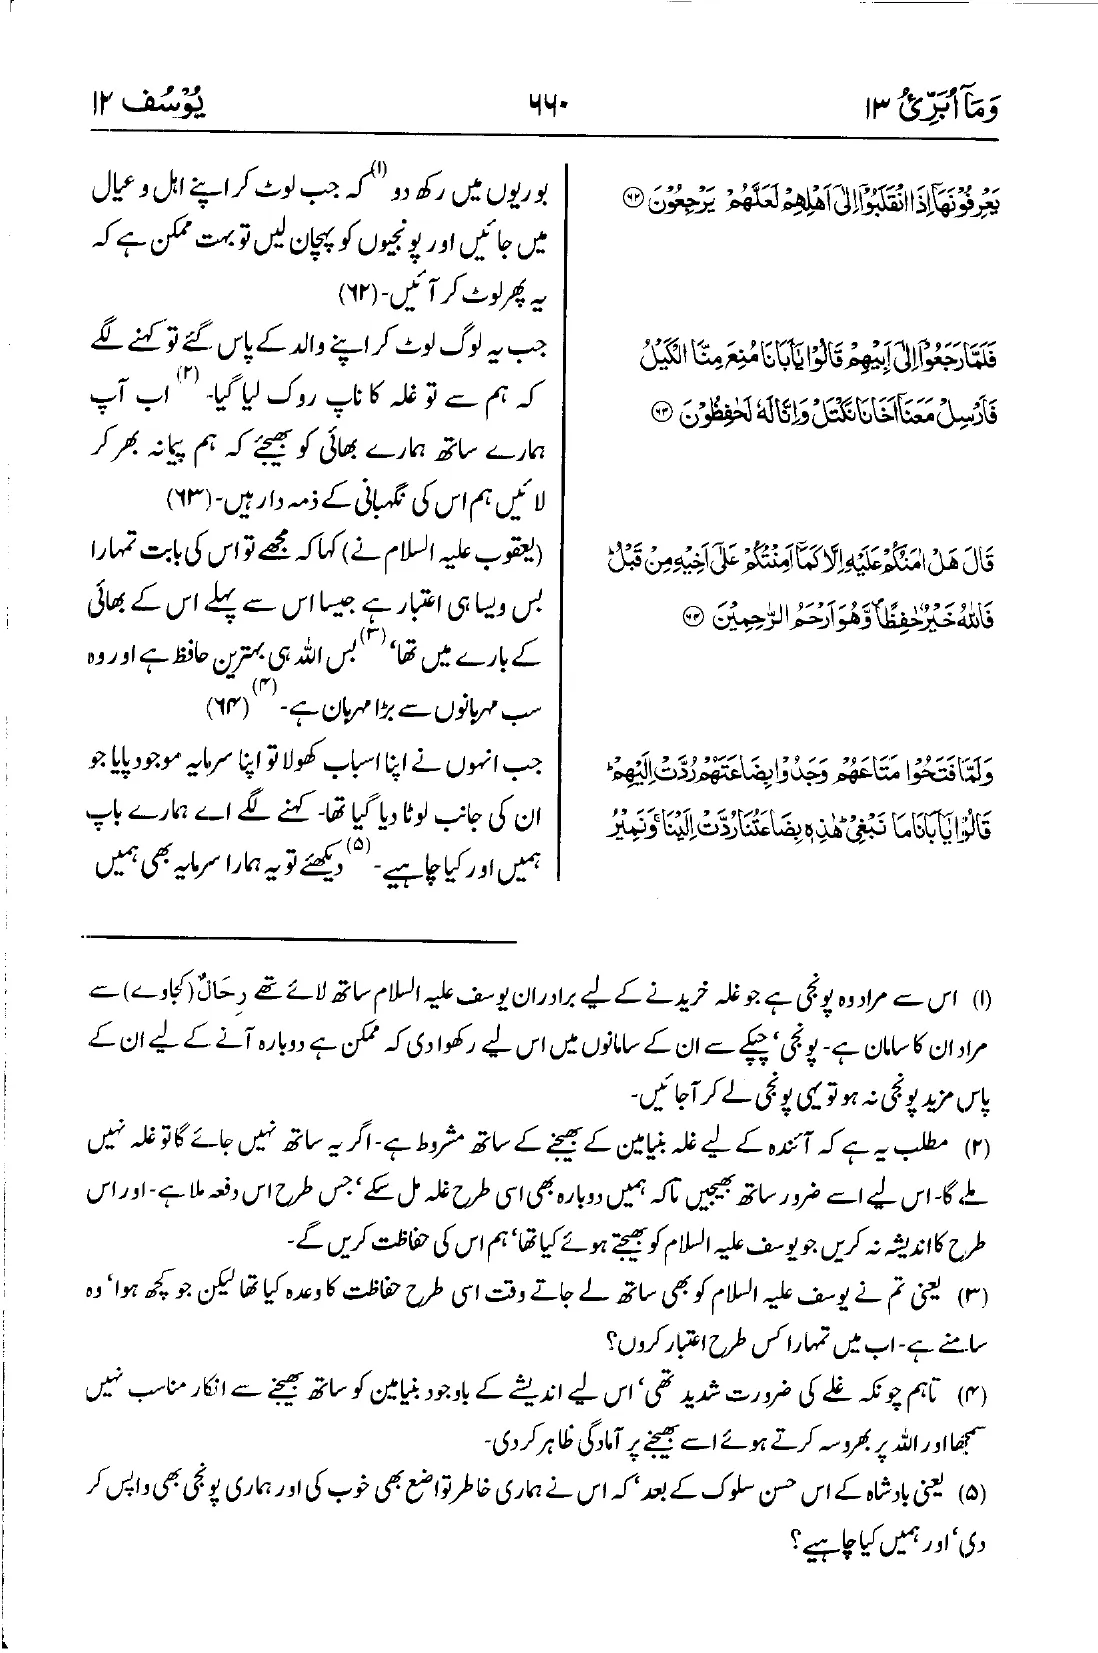 وَمَآ اُبَرِّئُ ١٣
٦٦٠
يُوْسُف ١٢
يَعْرِفُوْنَهَآ اِذَا انْقَلَبُوْٓا اِلٰٓى اَهْلِهِمْ لَعَلَّهُمْ يَرْجِعُوْنَ ۝٦٢
فَلَمَّا رَجَعُوْٓا اِلٰٓى اَبِيْهِمْ قَالُوْا يٰٓاَبَانَا مُنِعَ مِنَّا الْكَيْلُ
فَاَرْسِلْ مَعَنَآ اَخَانَا نَكْتَلْ وَاِنَّا لَهٗ لَحٰفِظُوْنَ ۝٦٣
قَالَ هَلْ اٰمَنُكُمْ عَلَيْهِ اِلَّا كَمَآ اَمِنْتُكُمْ عَلٰٓى اَخِيْهِ مِنْ قَبْلُ ۭ
فَاللّٰهُ خَيْرٌ حٰفِظًا ۠ وَّهُوَ اَرْحَمُ الرّٰحِمِيْنَ ۝٦٤
وَلَمَّا فَتَحُوْا مَتَاعَهُمْ وَجَدُوْا بِضَاعَتَهُمْ رُدَّتْ اِلَيْهِمْ ۭ
قَالُوْا يٰٓاَبَانَا مَا نَبْغِيْ ۭ هٰذِهٖ بِضَاعَتُنَا رُدَّتْ اِلَيْنَا ۚ وَنَمِيْرُ
بوریوں میں رکھ دو (۱) کہ جب لوٹ کر اپنے اہل و عیال
میں جائیں اور پونجیوں کو پہچان لیں تو بہت ممکن ہے کہ
یہ پھر لوٹ کر آئیں۔ (۶۲)
جب یہ لوگ لوٹ کر اپنے والد کے پاس گئے تو کہنے لگے
کہ ہم سے تو غلہ کا ناپ روک لیا گیا۔ (۲) اب آپ
ہمارے ساتھ ہمارے بھائی کو بھیجئے کہ ہم پیمانہ بھر کر
لائیں ہم اس کی نگہبانی کے ذمہ دار ہیں۔ (۶۳)
(یعقوب علیہ السلام نے) کہا کہ مجھے تو اس کی بابت تمہارا
بس ویسا ہی اعتبار ہے جیسا اس سے پہلے اس کے بھائی
کے بارے میں تھا، (۳) بس اللہ ہی بہترین حافظ ہے اور وہ
سب مہربانوں سے بڑا مہربان ہے۔ (۴) (۶۴)
جب انہوں نے اپنا اسباب کھولا تو اپنا سرمایہ موجود پایا جو
ان کی جانب لوٹا دیا گیا تھا۔ کہنے لگے اے ہمارے باپ
ہمیں اور کیا چاہیے۔ (۵) دیکھئے تو یہ ہمارا سرمایہ بھی ہمیں
(۱) اس سے مراد وہ پونجی ہے جو غلہ خریدنے کے لیے برادران یوسف علیہ السلام ساتھ لائے تھے رِحَالٌ (کجاوے) سے
مراد ان کا سامان ہے۔ پونجی، چپکے سے ان کے سامانوں میں اس لیے رکھوا دی کہ ممکن ہے دوبارہ آنے کے لیے ان کے
پاس مزید پونجی نہ ہو تو یہی پونجی لے کر آجائیں۔
(۲) مطلب یہ ہے کہ آئندہ کے لیے غلہ بنیامین کے بھیجنے کے ساتھ مشروط ہے۔ اگر یہ ساتھ نہیں جائے گا تو غلہ نہیں
ملے گا۔ اس لیے اسے ضرور ساتھ بھیجیں تاکہ ہمیں دوبارہ بھی اسی طرح غلہ مل سکے، جس طرح اس دفعہ ملا ہے۔ اور اس
طرح کا اندیشہ نہ کریں جو یوسف علیہ السلام کو بھیجتے ہوئے کیا تھا، ہم اس کی حفاظت کریں گے۔
(۳) یعنی تم نے یوسف علیہ السلام کو بھی ساتھ لے جاتے وقت اسی طرح حفاظت کا وعدہ کیا تھا لیکن جو کچھ ہوا، وہ
سامنے ہے۔ اب میں تمہارا کس طرح اعتبار کروں؟
(۴) تاہم چونکہ غلے کی ضرورت شدید تھی، اس لیے اندیشے کے باوجود بنیامین کو ساتھ بھیجنے سے انکار مناسب نہیں
سمجھا اور اللہ پر بھروسہ کرتے ہوئے اسے بھیجنے پر آمادگی ظاہر کر دی۔
(۵) یعنی بادشاہ کے اس حسن سلوک کے بعد، کہ اس نے ہماری خاطر تواضع بھی خوب کی اور ہماری پونجی بھی واپس کر
دی، اور ہمیں کیا چاہیے؟